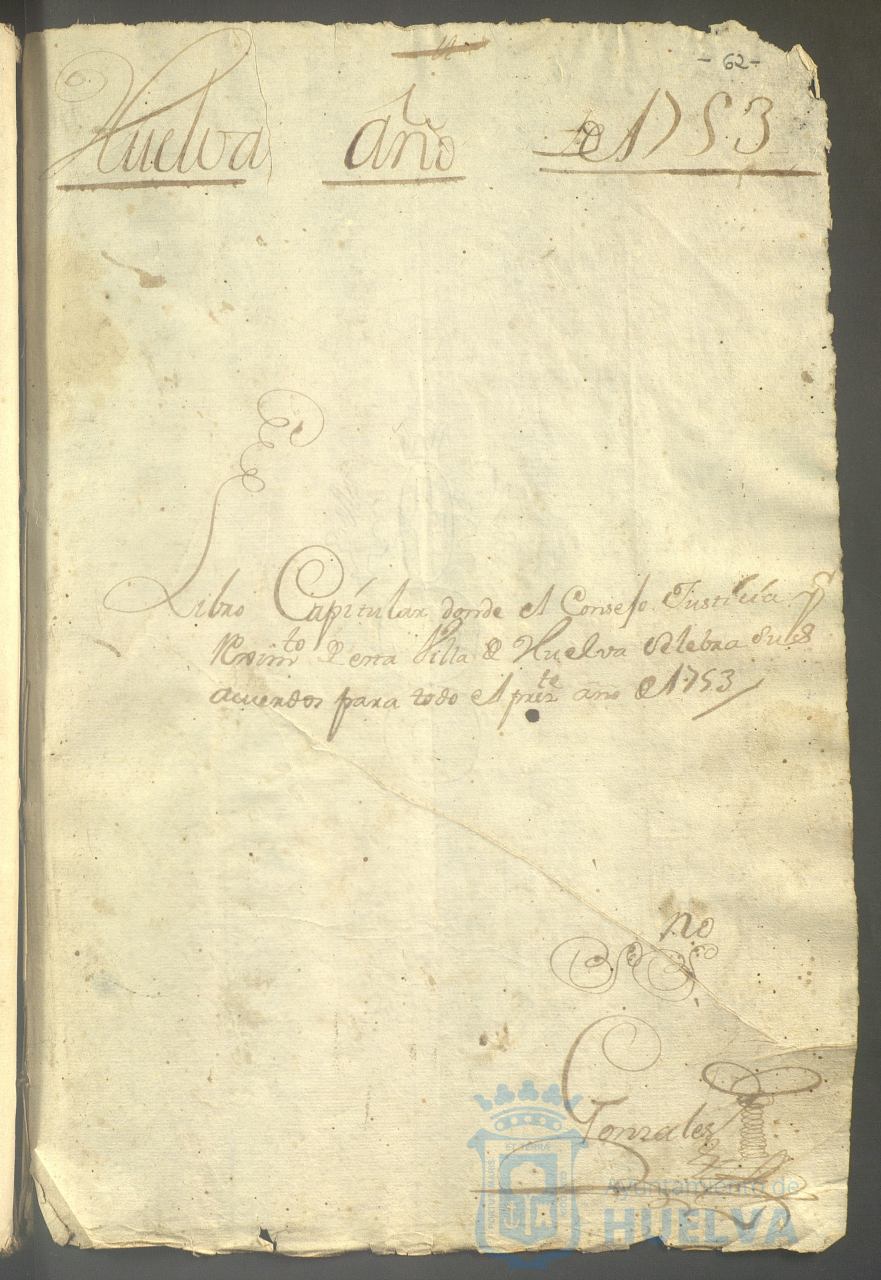 - 62 -
Huelva año de 1753
Libro Capitular donde el Consejo Justicia y
Rexim<sup>to</sup> de esta Villa de Huelva Selebra Sus
acuerdos para todo el pres<sup>te</sup> año de 1753
no
Gonzales
Ayuntamiento de
HUELVA